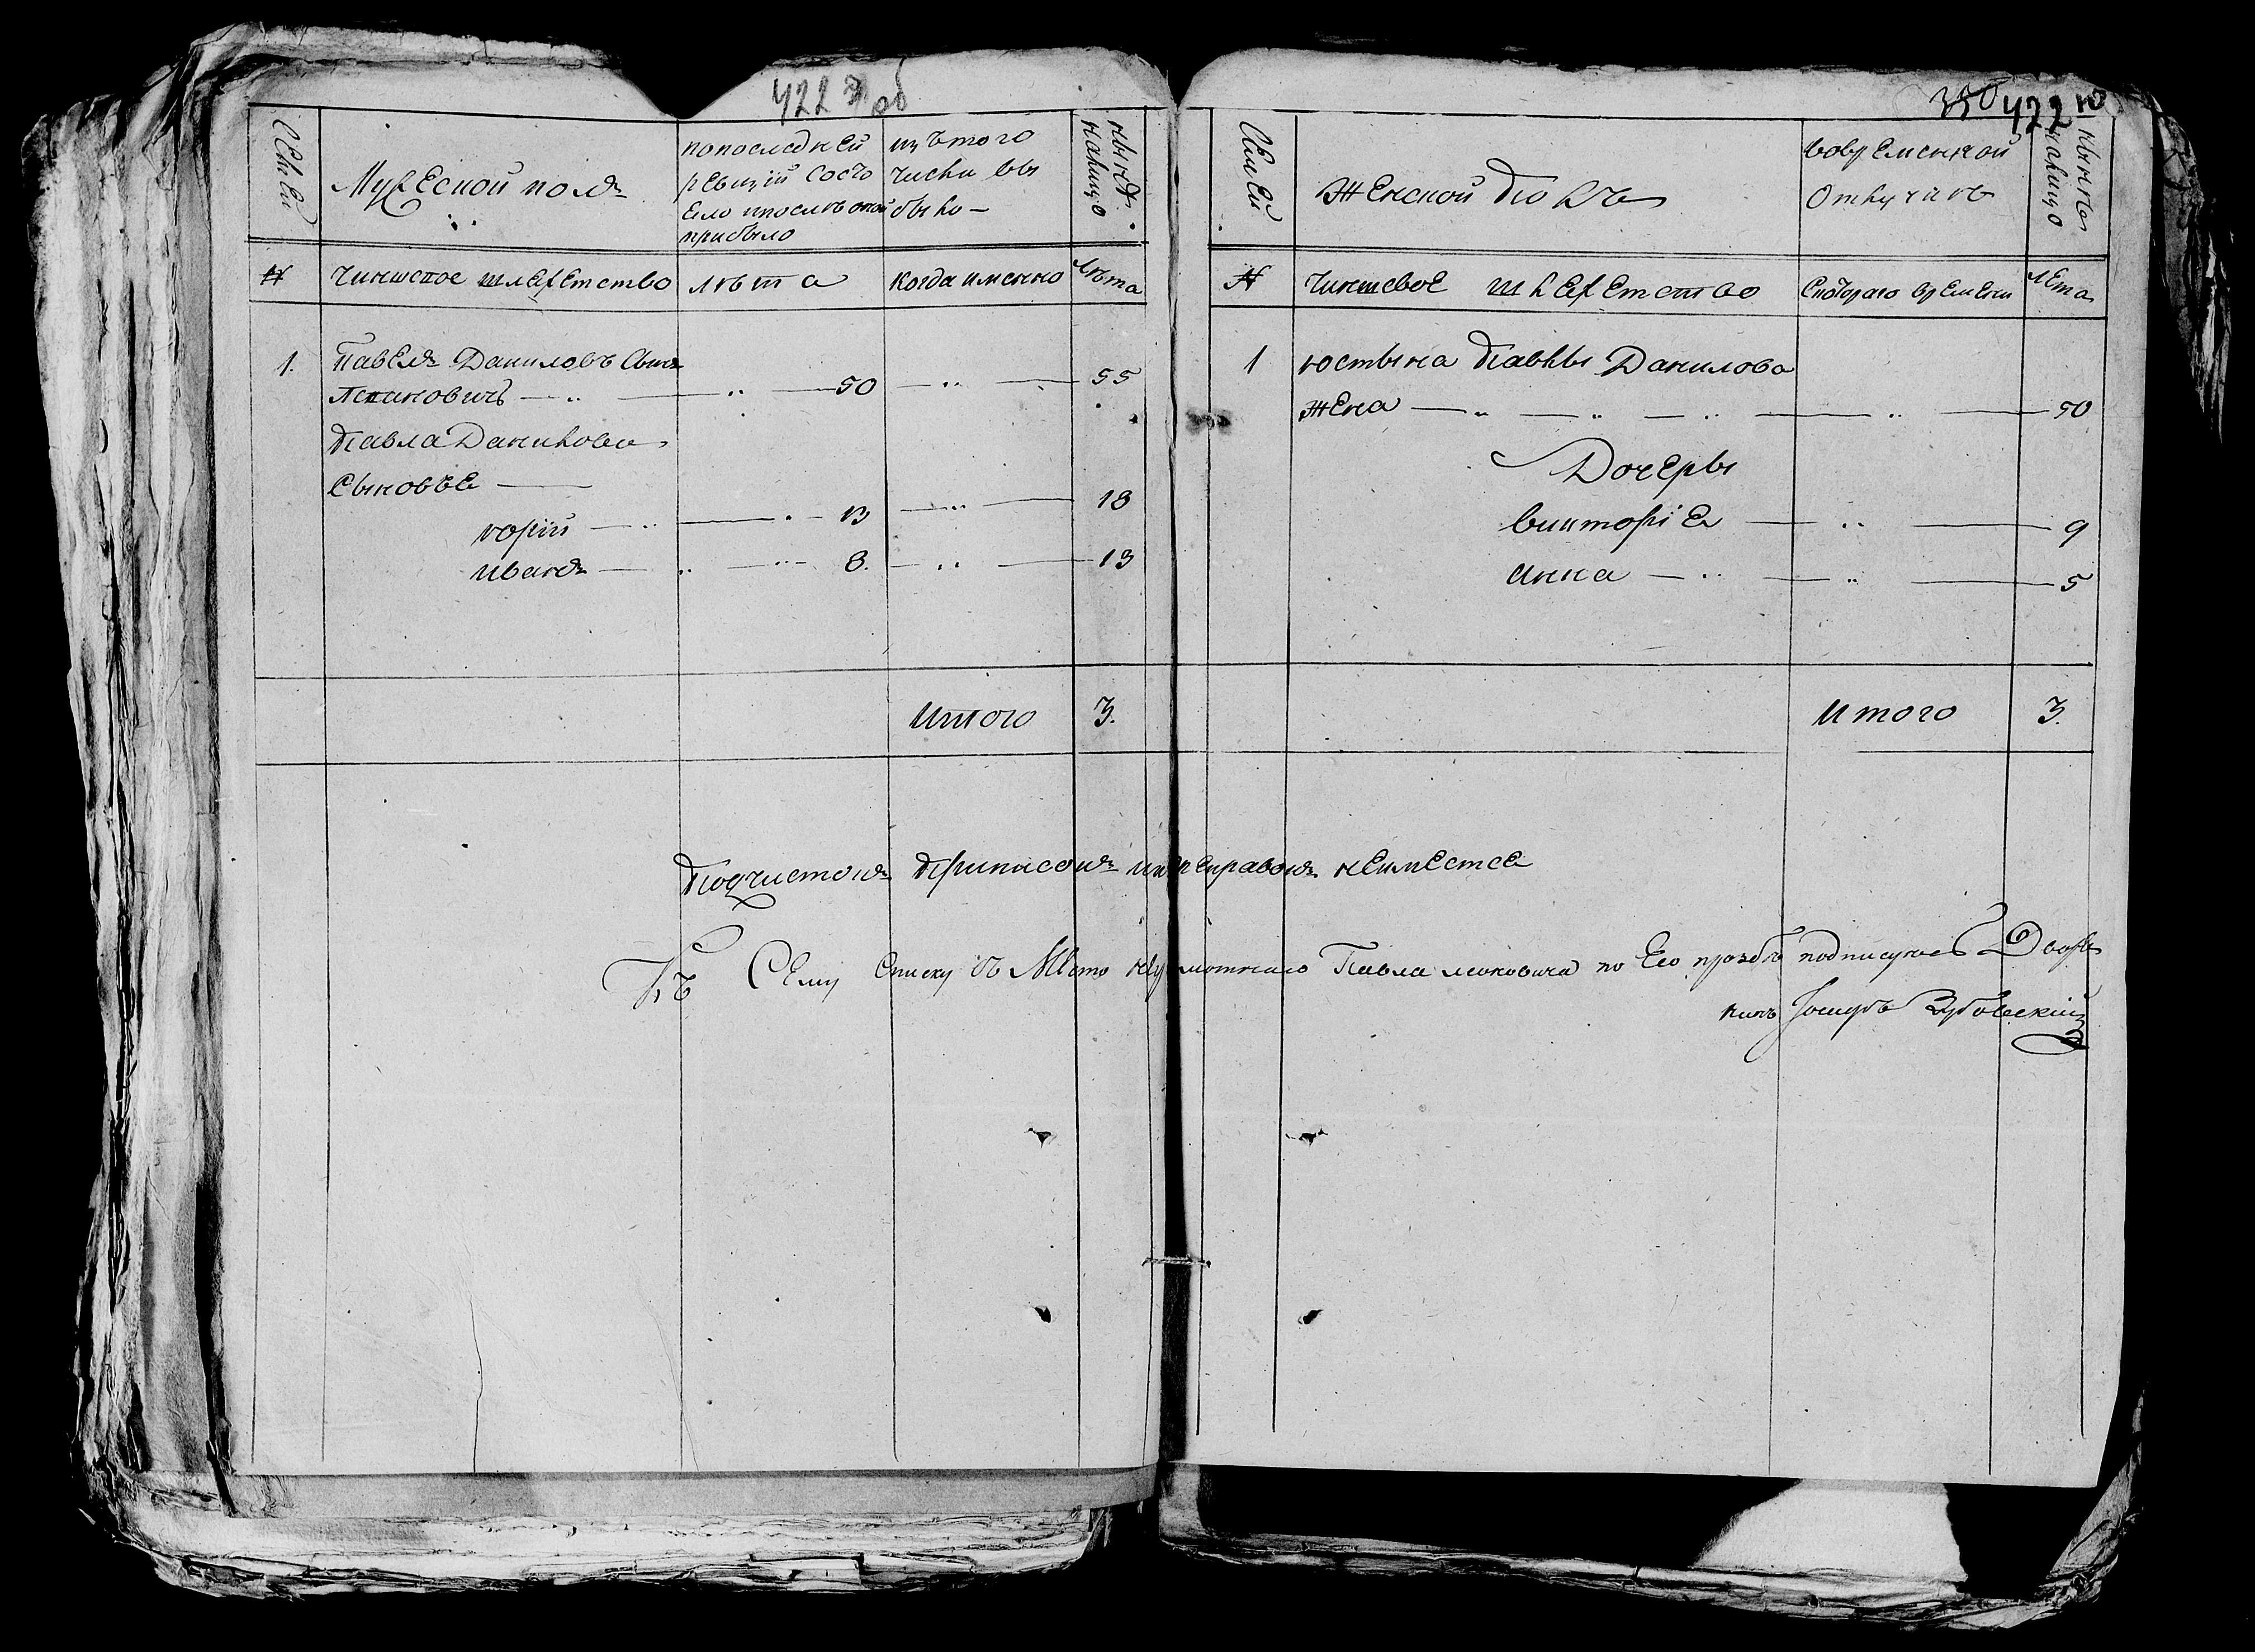 422 об
350 422
Семьи
Мужеской полъ
попоследней
ревизіи состо
яло ипослѣ оной
прибыло
изътого
числа вы
было —
нынѣ
налицо
№ Чиншевое шляхетство лѣта когда именно лѣта
1. Павелъ Даниловъ Сынъ
— „ — „ — 50 — „ — 55
Павла Данилова
Сыновье —
юрій — „ — 13 — „ — 18
иванъ — „ — „ 8. — „ — 13
Итого 3.
Семьи
Женской полъ
вовременной
Отлучкѣ
нынѣ
налицо
№ Чиншевое шляхетство Скоторого времени лета
1 юстына Павлы Данилова
жена — „ — „ — „ — „ — 50
Дочеры
викторіе — „ — 9
анна — „ — „ — 5
Итого 3.
Подчистокъ Приписокъ ипереправокъ неиместся
Къ Сему Списку въ Место неграмотнаго Павла по Его прозбѣ подписуюсь Дворя
нинъ Іосифъ Зубовскій